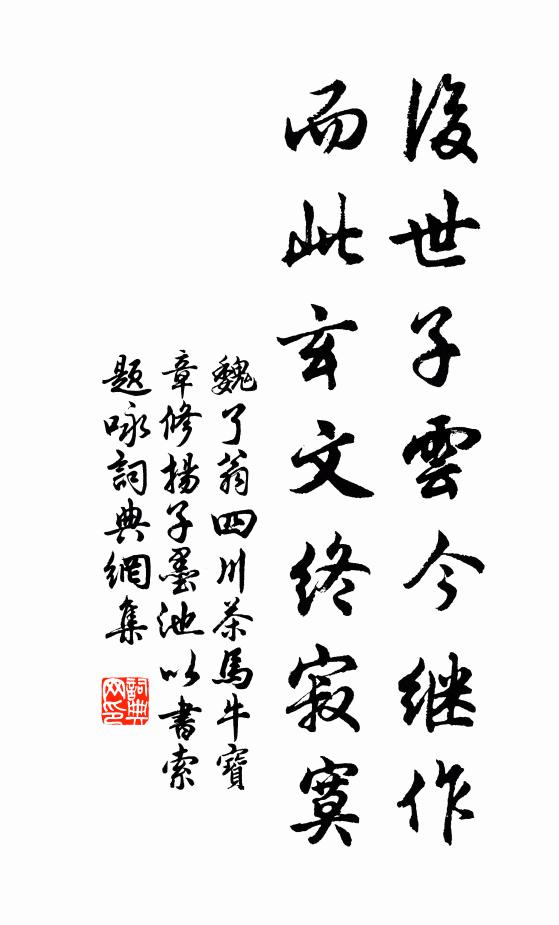 後世子雲今継作
而此玄文終寂寞
魏了翁四川茶馬牛寶
章修揚子墨池以書索
題咏詞典網集
詞典
网印